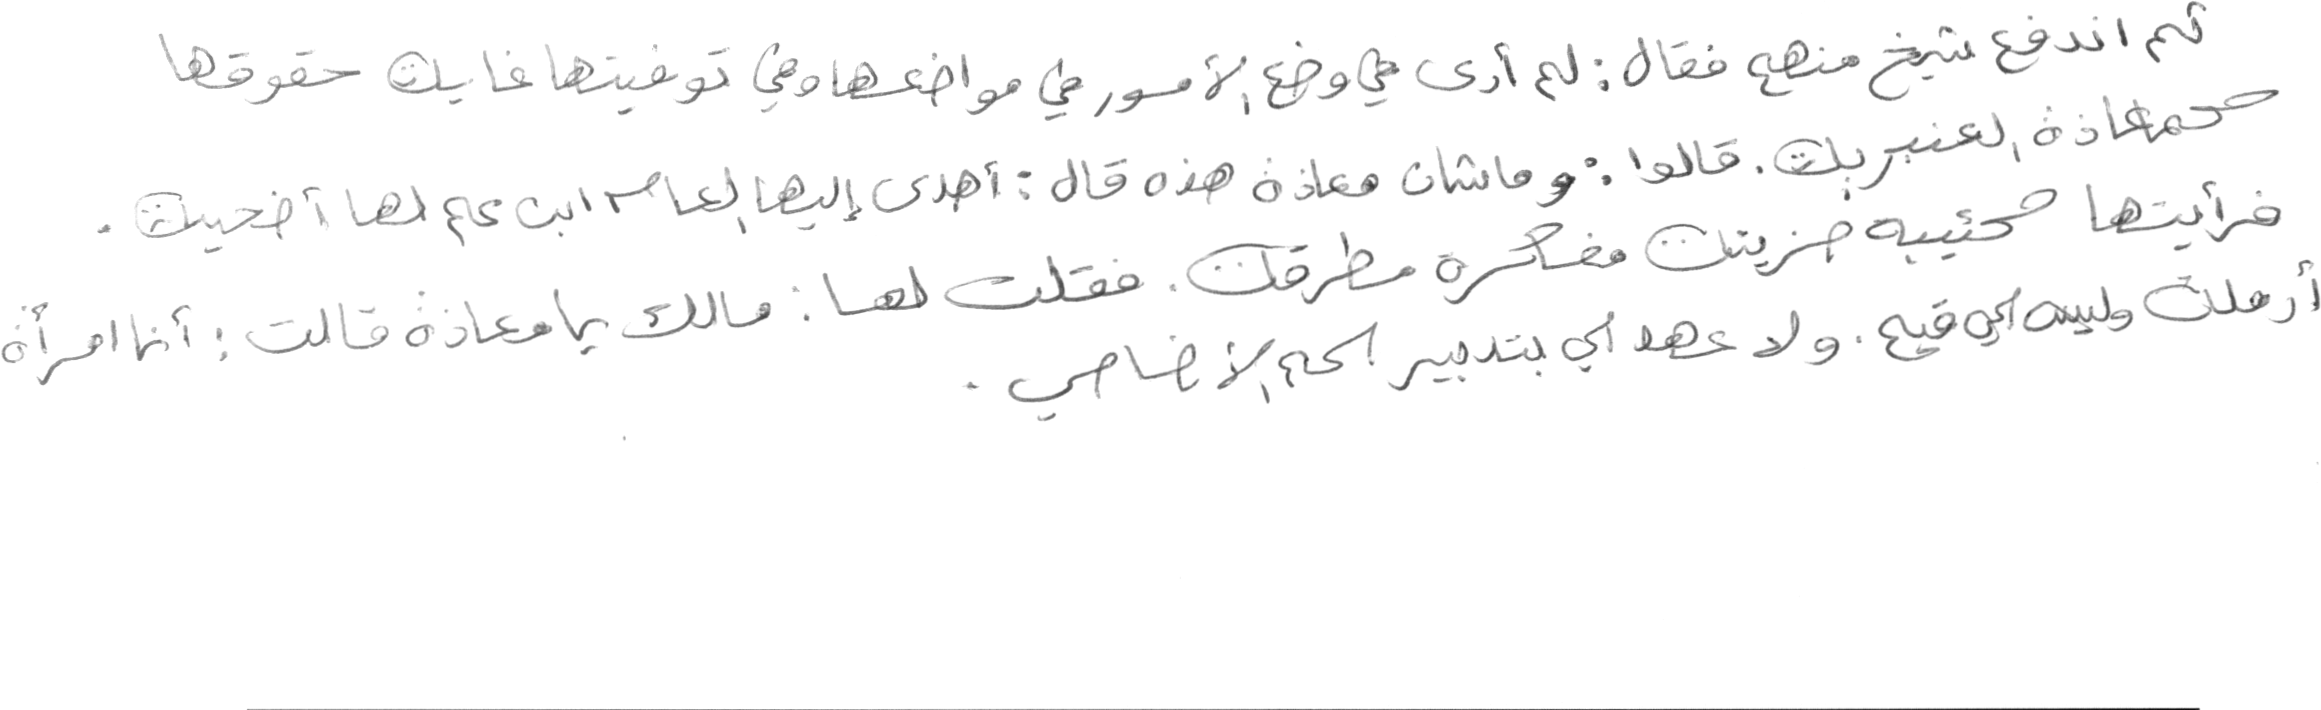 ثم اندفع شيخ منهم فقال : لم أرى في وضع الأمور في مواضعها وفي توفيتها غاية حقوقها
كمعاذة العنبرية . قالوا : وما شأن معاذة هذه قال : أهدى إليها العام ابن عم لها أضحية .
فرأيتها كئيبه حزينة مفكرة مطرقة . فقلت لها : مالك يا معاذة قالت : أنا امرأة
أرملة وليس لي قيم . ولا عهد لي بتدبير لحم الأضاحي .